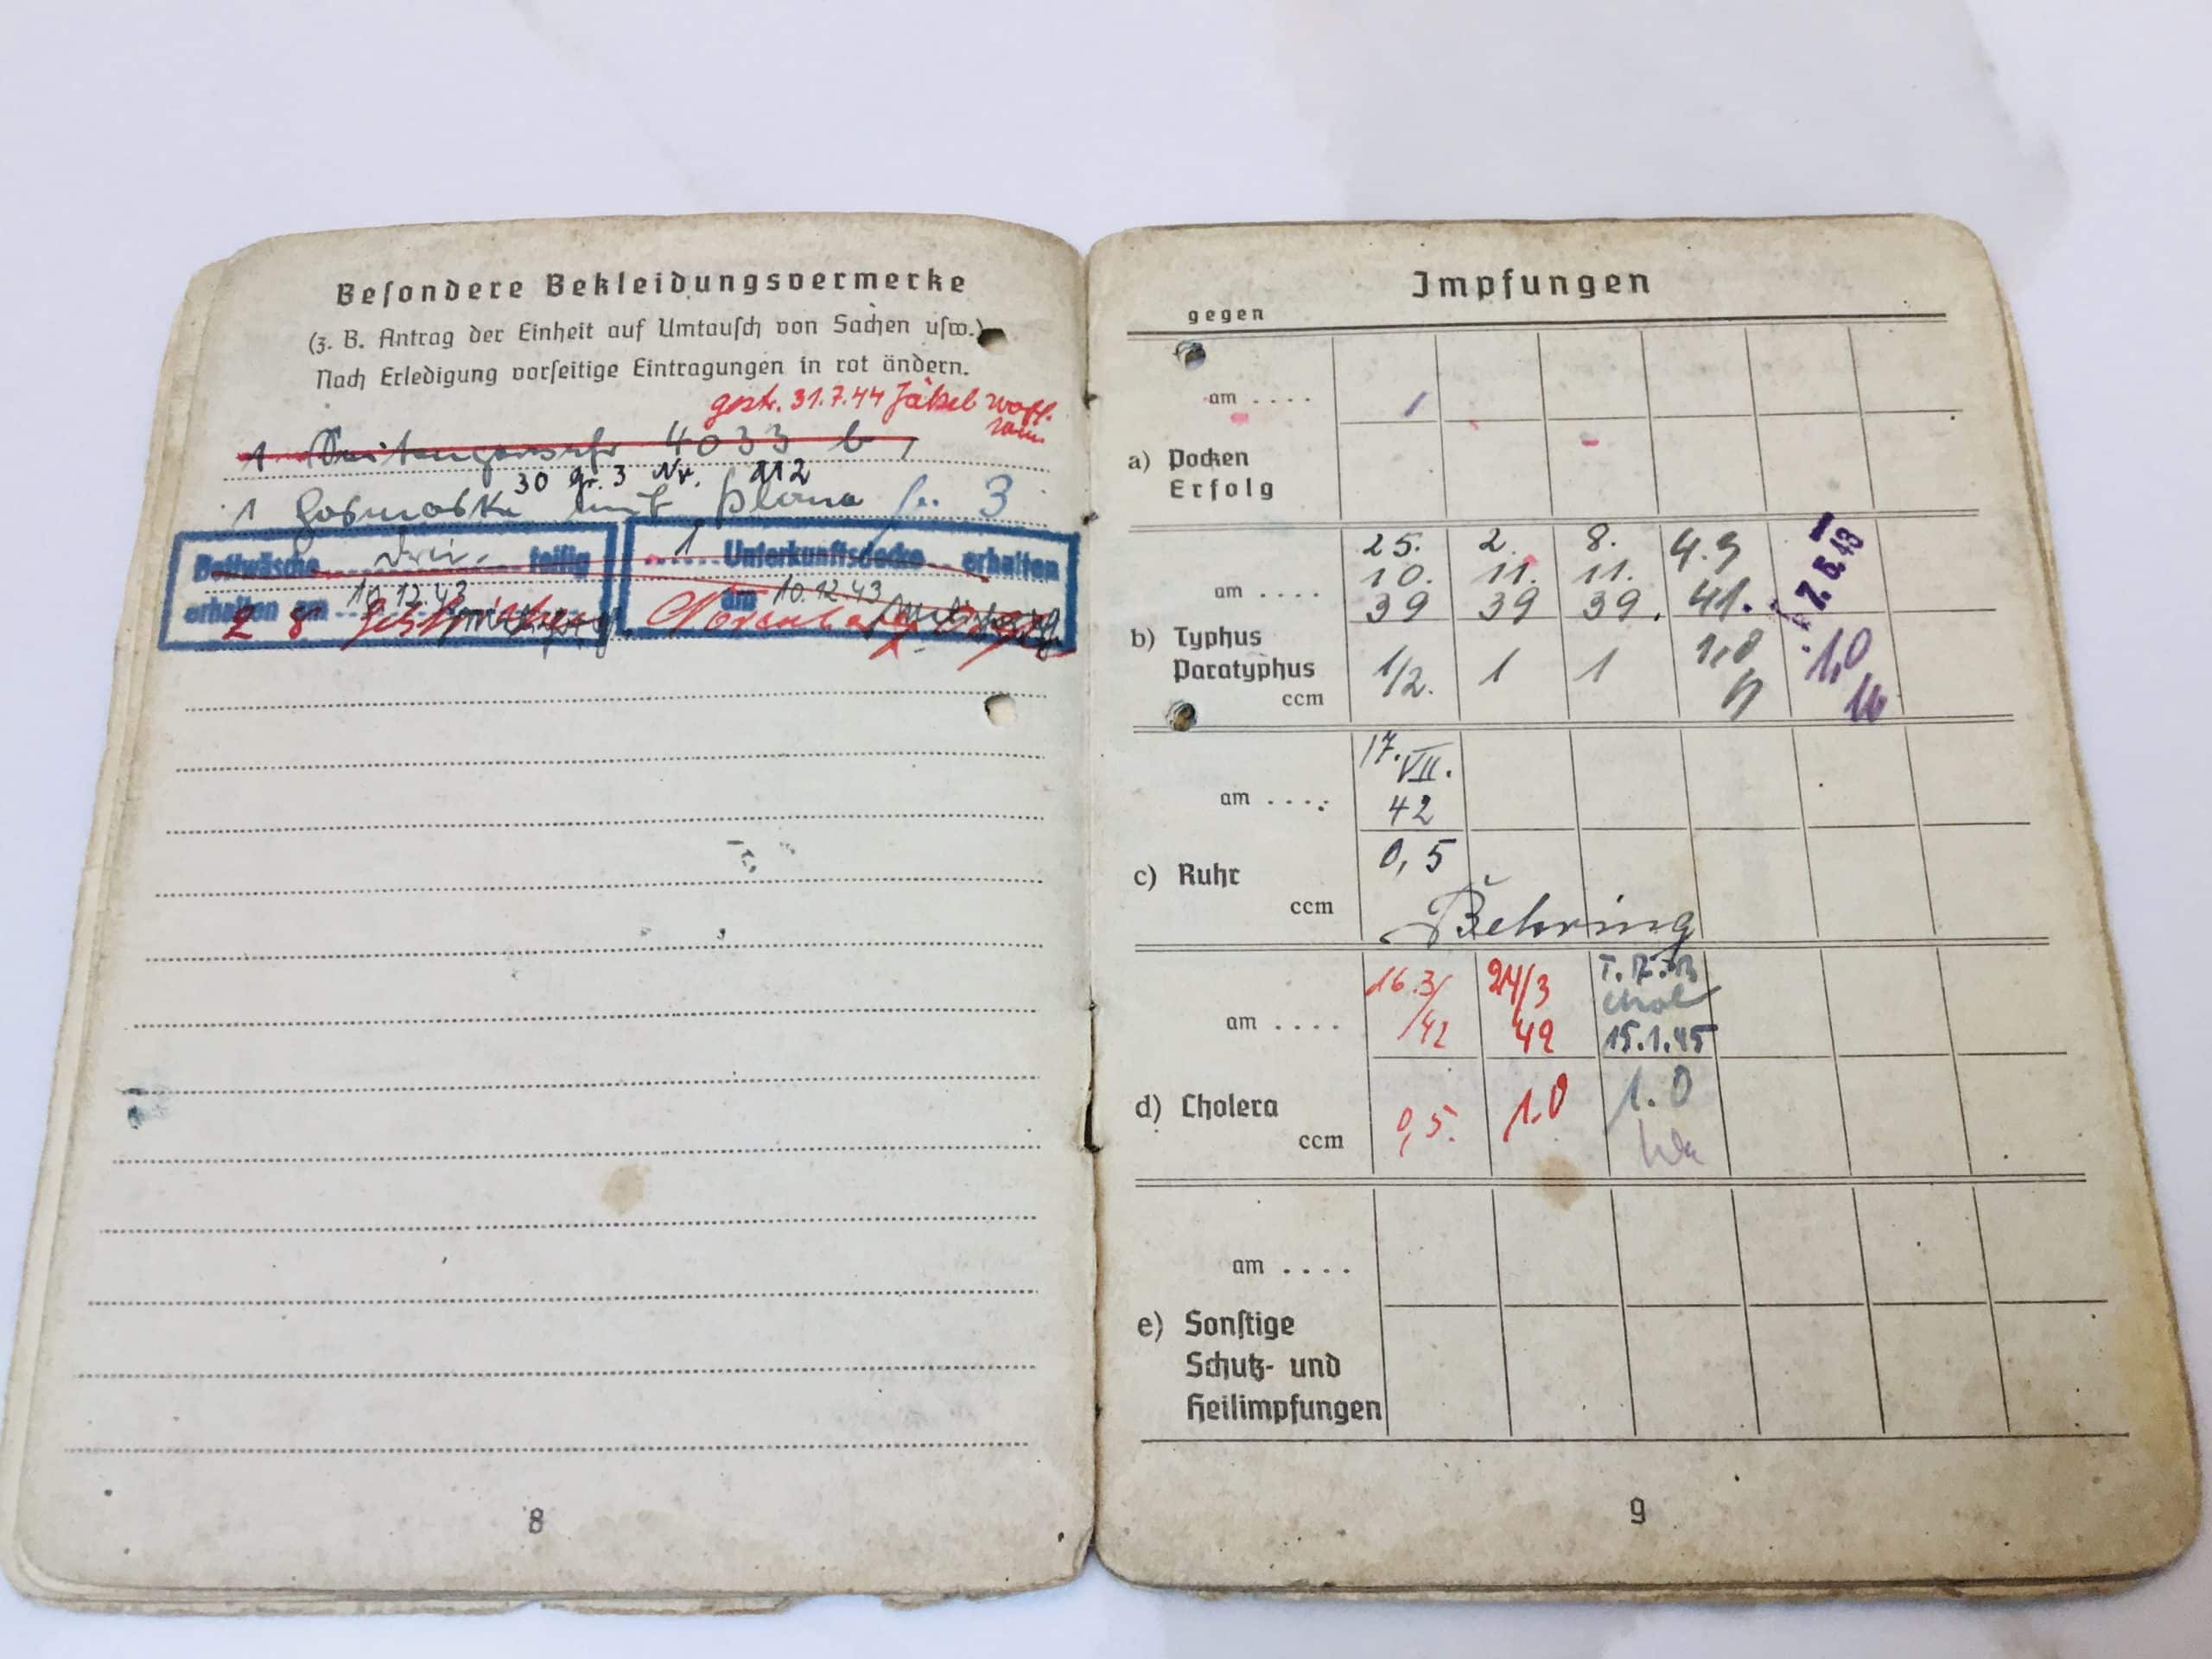 Besondere Bekleidungsvermerke
(z. B. Antrag der Einheit auf Umtausch von Sachen usw.)
Nach Erledigung vorseitige Eintragungen in rot ändern.
gestr. 31.7.44 Jäkel
1 4033 b
30 gr. 3 Nr. 112
1 Gasmaske mit Plane gr. 3
Bettwäsche drei teilig
erhalten am 10.12.43
1 Unterkunftsdecke erhalten
am 10.12.43
8
Impfungen
gegen
am ....
a) Pocken
Erfolg
25. 2. 8. 4.3
10. 11. 11.
am .... 39 39 39. 41.
b) Typhus
Paratyphus
ccm 1/2. 1 1 1,0 1,0
17. VII.
am .... 42
c) Ruhr 0,5
ccm
Behring
16.3/ 24/3
chol
am .... /42 42 15.1.45
d) Cholera
ccm 0,5. 1.0 1.0
am ....
e) Sonstige
Schutz- und
Heilimpfungen
9